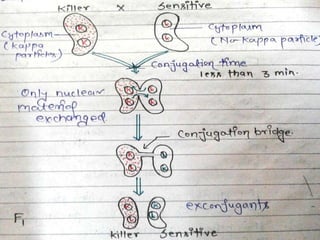 Killer × Sensitive
Cytoplasm
(kappa
particles)
Cytoplasm
(No kappa particle)
Conjugation time
less than 3 min.
Only nuclear
material
exchanged
Conjugation bridge.
exconjugants
F1
Killer Sensitive